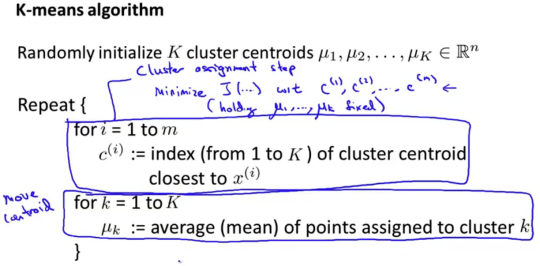 K-means algorithm
Randomly initialize K cluster centroids μ₁, μ₂, . . . , μ_K ∈ ℝⁿ
Cluster assignment step
Minimize J(...) wrt c⁽¹⁾, c⁽²⁾, ..., c⁽ᵐ⁾ ←
(holding μ₁, ..., μ_K fixed)
Repeat {
for i = 1 to m
c⁽ⁱ⁾ := index (from 1 to K) of cluster centroid
closest to x⁽ⁱ⁾
move
centroid
for k = 1 to K
μ_k := average (mean) of points assigned to cluster k
}